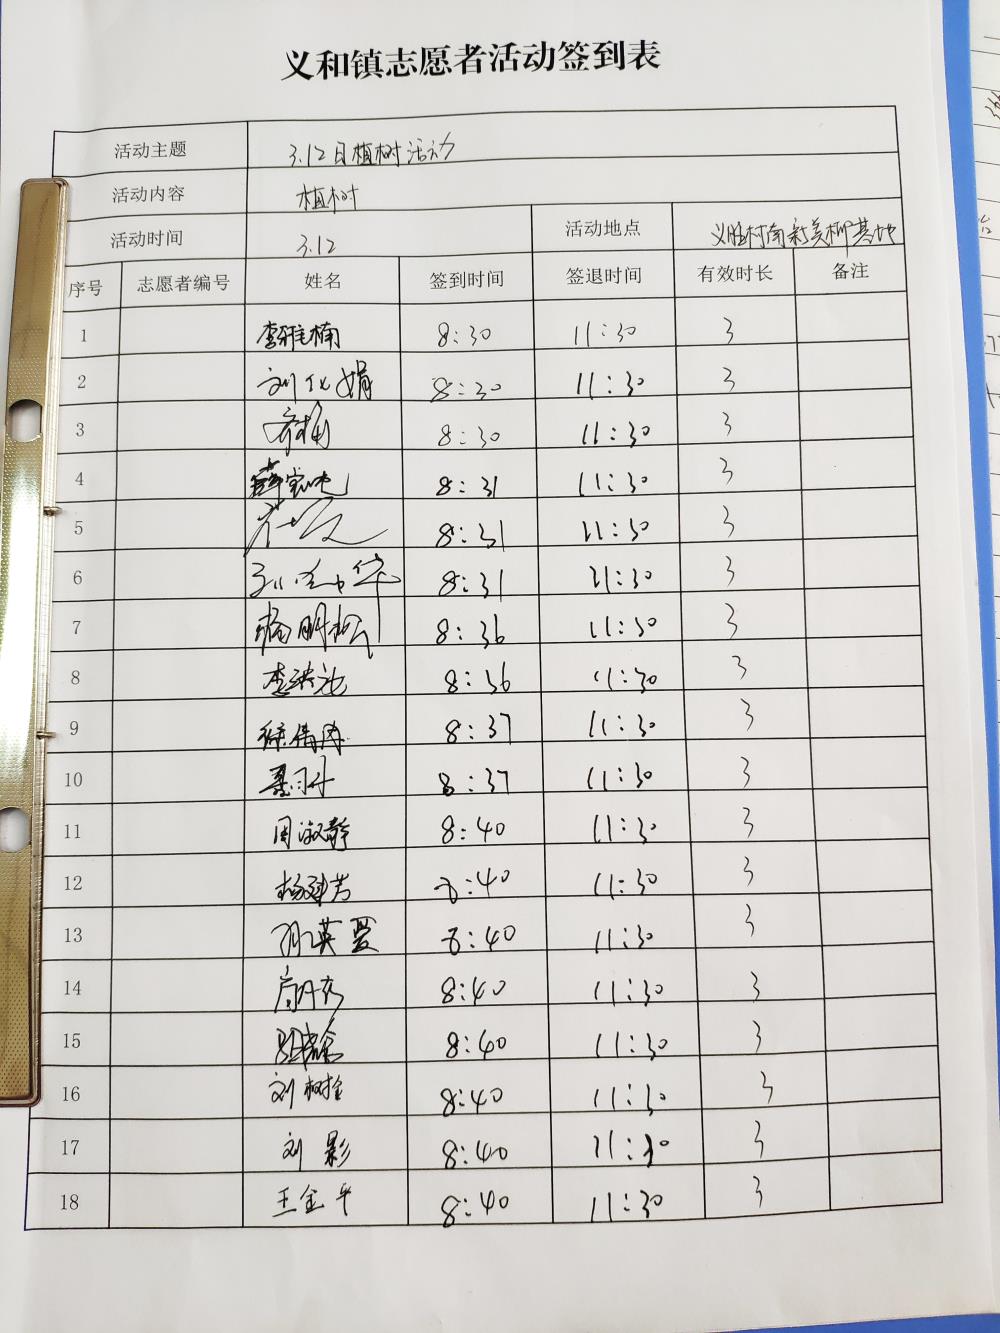 义和镇志愿者活动签到表
活动主题 3.12日植树活动
活动内容 植树
活动时间 3.12 活动地点 义胜村南新美柳基地
序号 志愿者编号 姓名 签到时间 签退时间 有效时长 备注
1 李雅楠 8:30 11:30 3
2 刘化娟 8:30 11:30 3
3 8:30 11:30 3
4 8:31 11:30 3
5 8:31 11:30 3
6 8:31 11:30 3
7 杨明松 8:36 11:30 3
8 李洪池 8:36 11:30 3
9 徐倩倩 8:37 11:30 3
10 8:37 11:30 3
11 周淑静 8:40 11:30 3
12 杨建芳 8:40 11:30 3
13 孙英爱 8:40 11:30 3
14 8:40 11:30 3
15 8:40 11:30 3
16 刘树全 8:40 11:30 3
17 刘影 8:40 11:30 3
18 王金平 8:40 11:30 3